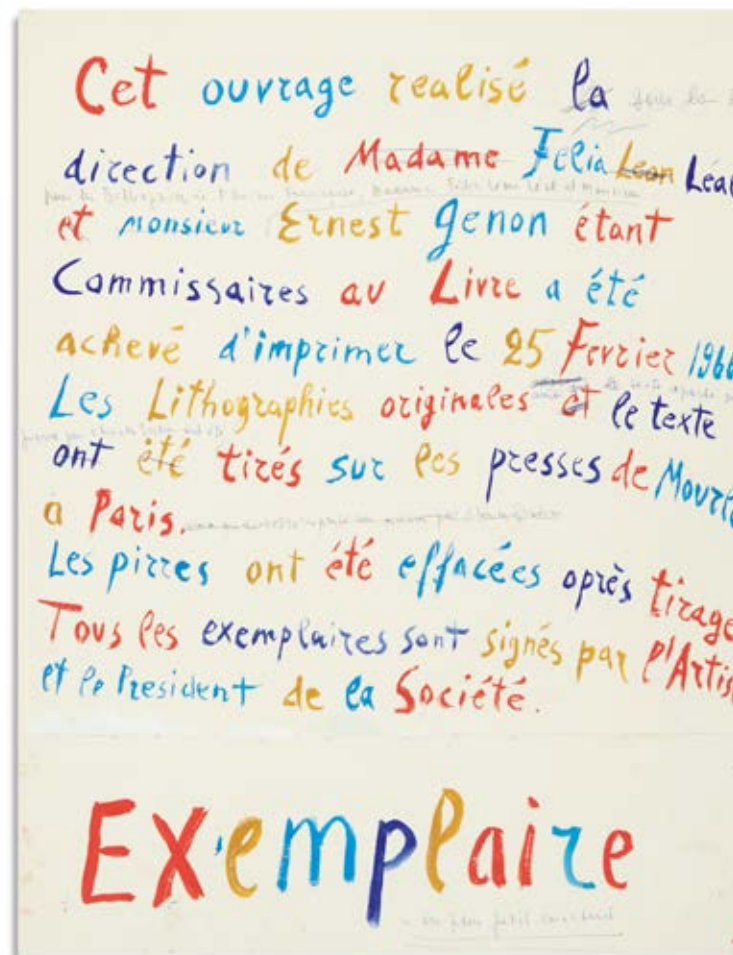 Cet ouvrage realisé la
direction de Madame Felia Leon Léal
et Monsieur Ernest Genon étant
Commissaires au Livre a été
achevé d'imprimer le 25 Fevrier 1966
Les Lithographies originales et le texte
ont été tirés sur les presses de Mourl
a Paris.
Les pirres ont été effacées oprès tirage
Tous les exemplaires sont signés par l'Artis
et le President de la Société.
Exemplaire